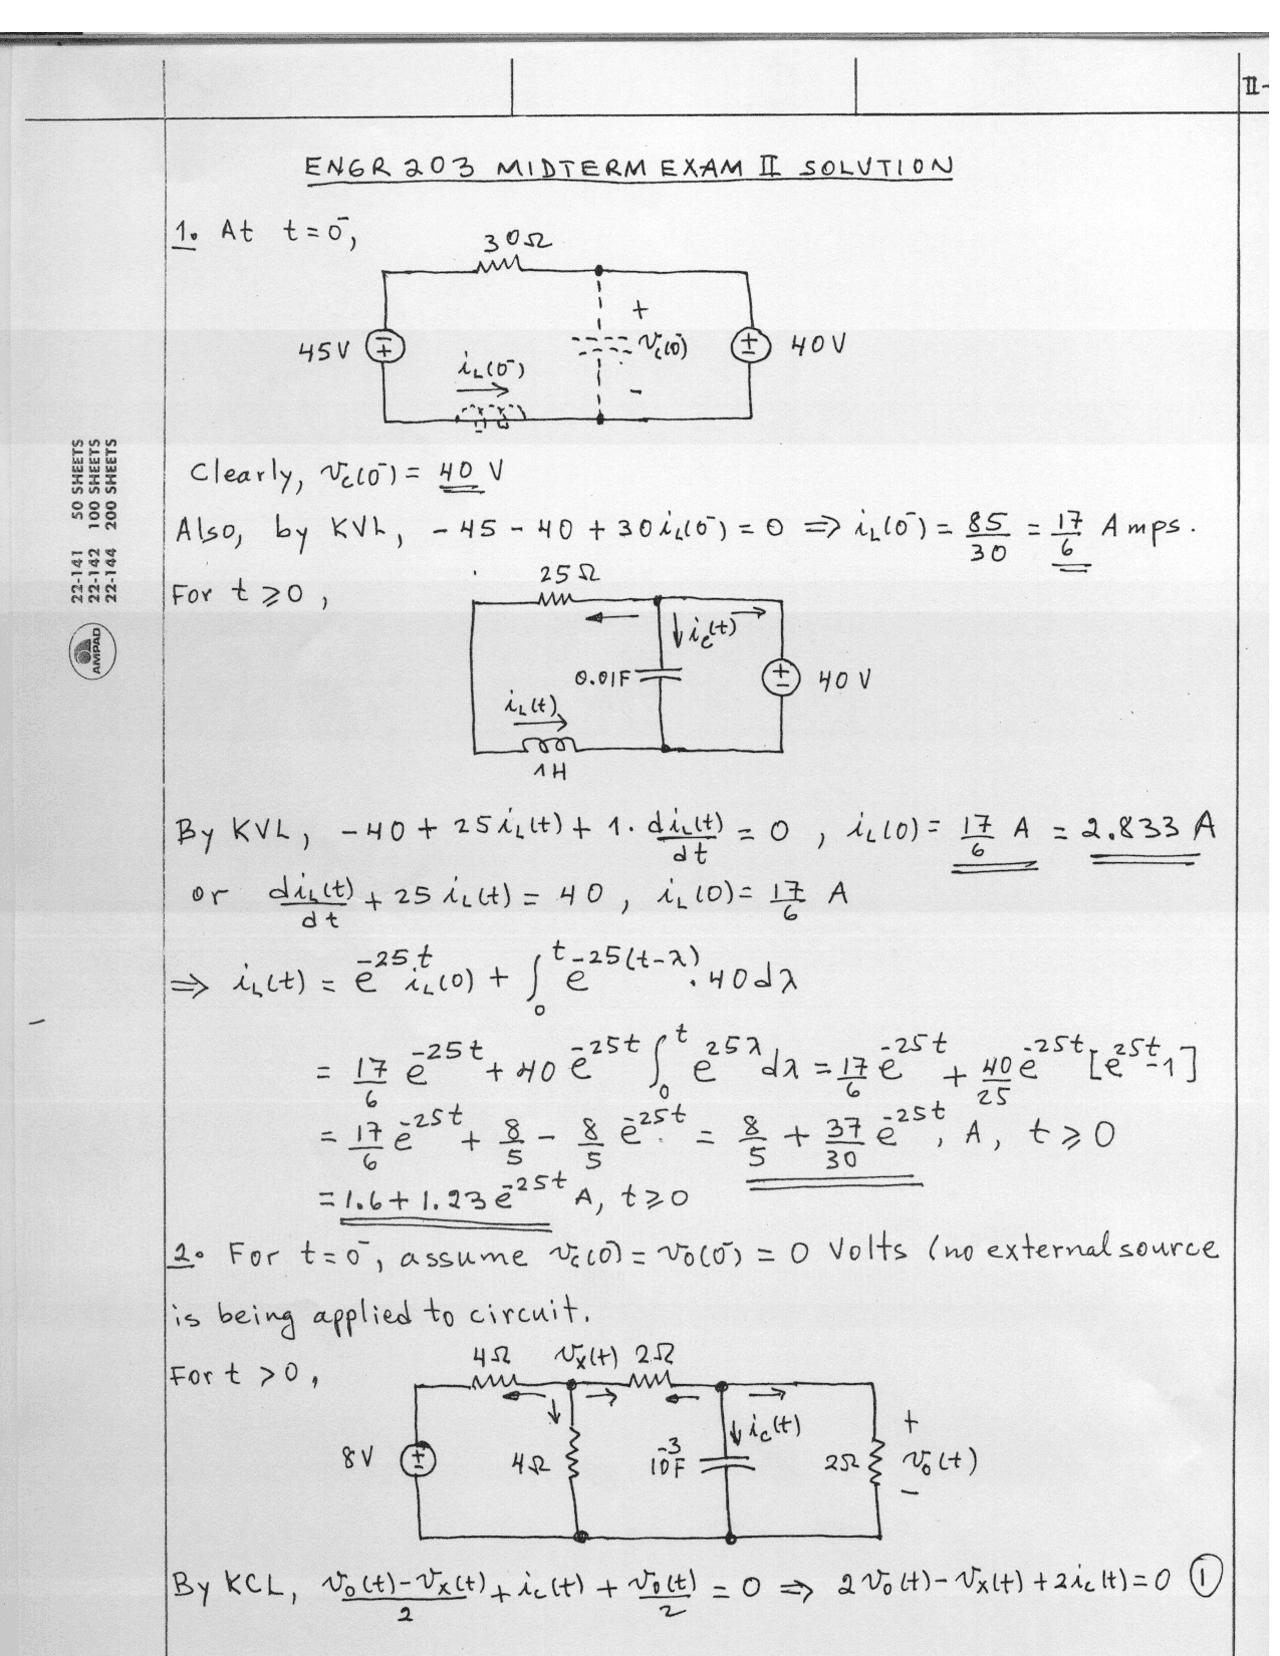 II-
ENGR 203 MIDTERM EXAM II SOLUTION
1. At t=0⁻,
30Ω
45V
i_L(0⁻)
+
v_c(0⁻)
-
40V
50 SHEETS
100 SHEETS
200 SHEETS
22-141
22-142
22-144
AMPAD
Clearly, v_c(0⁻) = 40 V
Also, by KVL, -45-40+30i_L(0⁻) = 0 ⇒ i_L(0⁻) = 85/30 = 17/6 Amps.
For t ≥ 0,
25Ω
i_c(t)
0.01F
40 V
i_L(t)
1H
By KVL, -40+25i_L(t)+1·di_L(t)/dt = 0, i_L(0) = 17/6 A = 2.833 A
or di_L(t)/dt + 25 i_L(t) = 40, i_L(0) = 17/6 A
⇒ i_L(t) = e^{-25t} i_L(0) + ∫₀ᵗ e^{-25(t-λ)}·40dλ
= 17/6 e^{-25t} + 40 e^{-25t} ∫₀ᵗ e^{25λ} dλ = 17/6 e^{-25t} + 40/25 e^{-25t}[e^{25t}-1]
= 17/6 e^{-25t} + 8/5 - 8/5 e^{-25t} = 8/5 + 37/30 e^{-25t}, A, t ≥ 0
= 1.6+1.23 e^{-25t} A, t ≥ 0
2. For t=0⁻, assume v_c(0⁻) = v_o(0⁻) = 0 Volts (no external source
is being applied to circuit.
For t > 0,
4Ω
v_x(t)
2Ω
8V
4Ω
10⁻³F
i_c(t)
2Ω
+
v_o(t)
-
By KCL, (v_o(t)-v_x(t))/2 + i_c(t) + v_o(t)/2 = 0 ⇒ 2v_o(t)-v_x(t)+2i_c(t)=0 ①